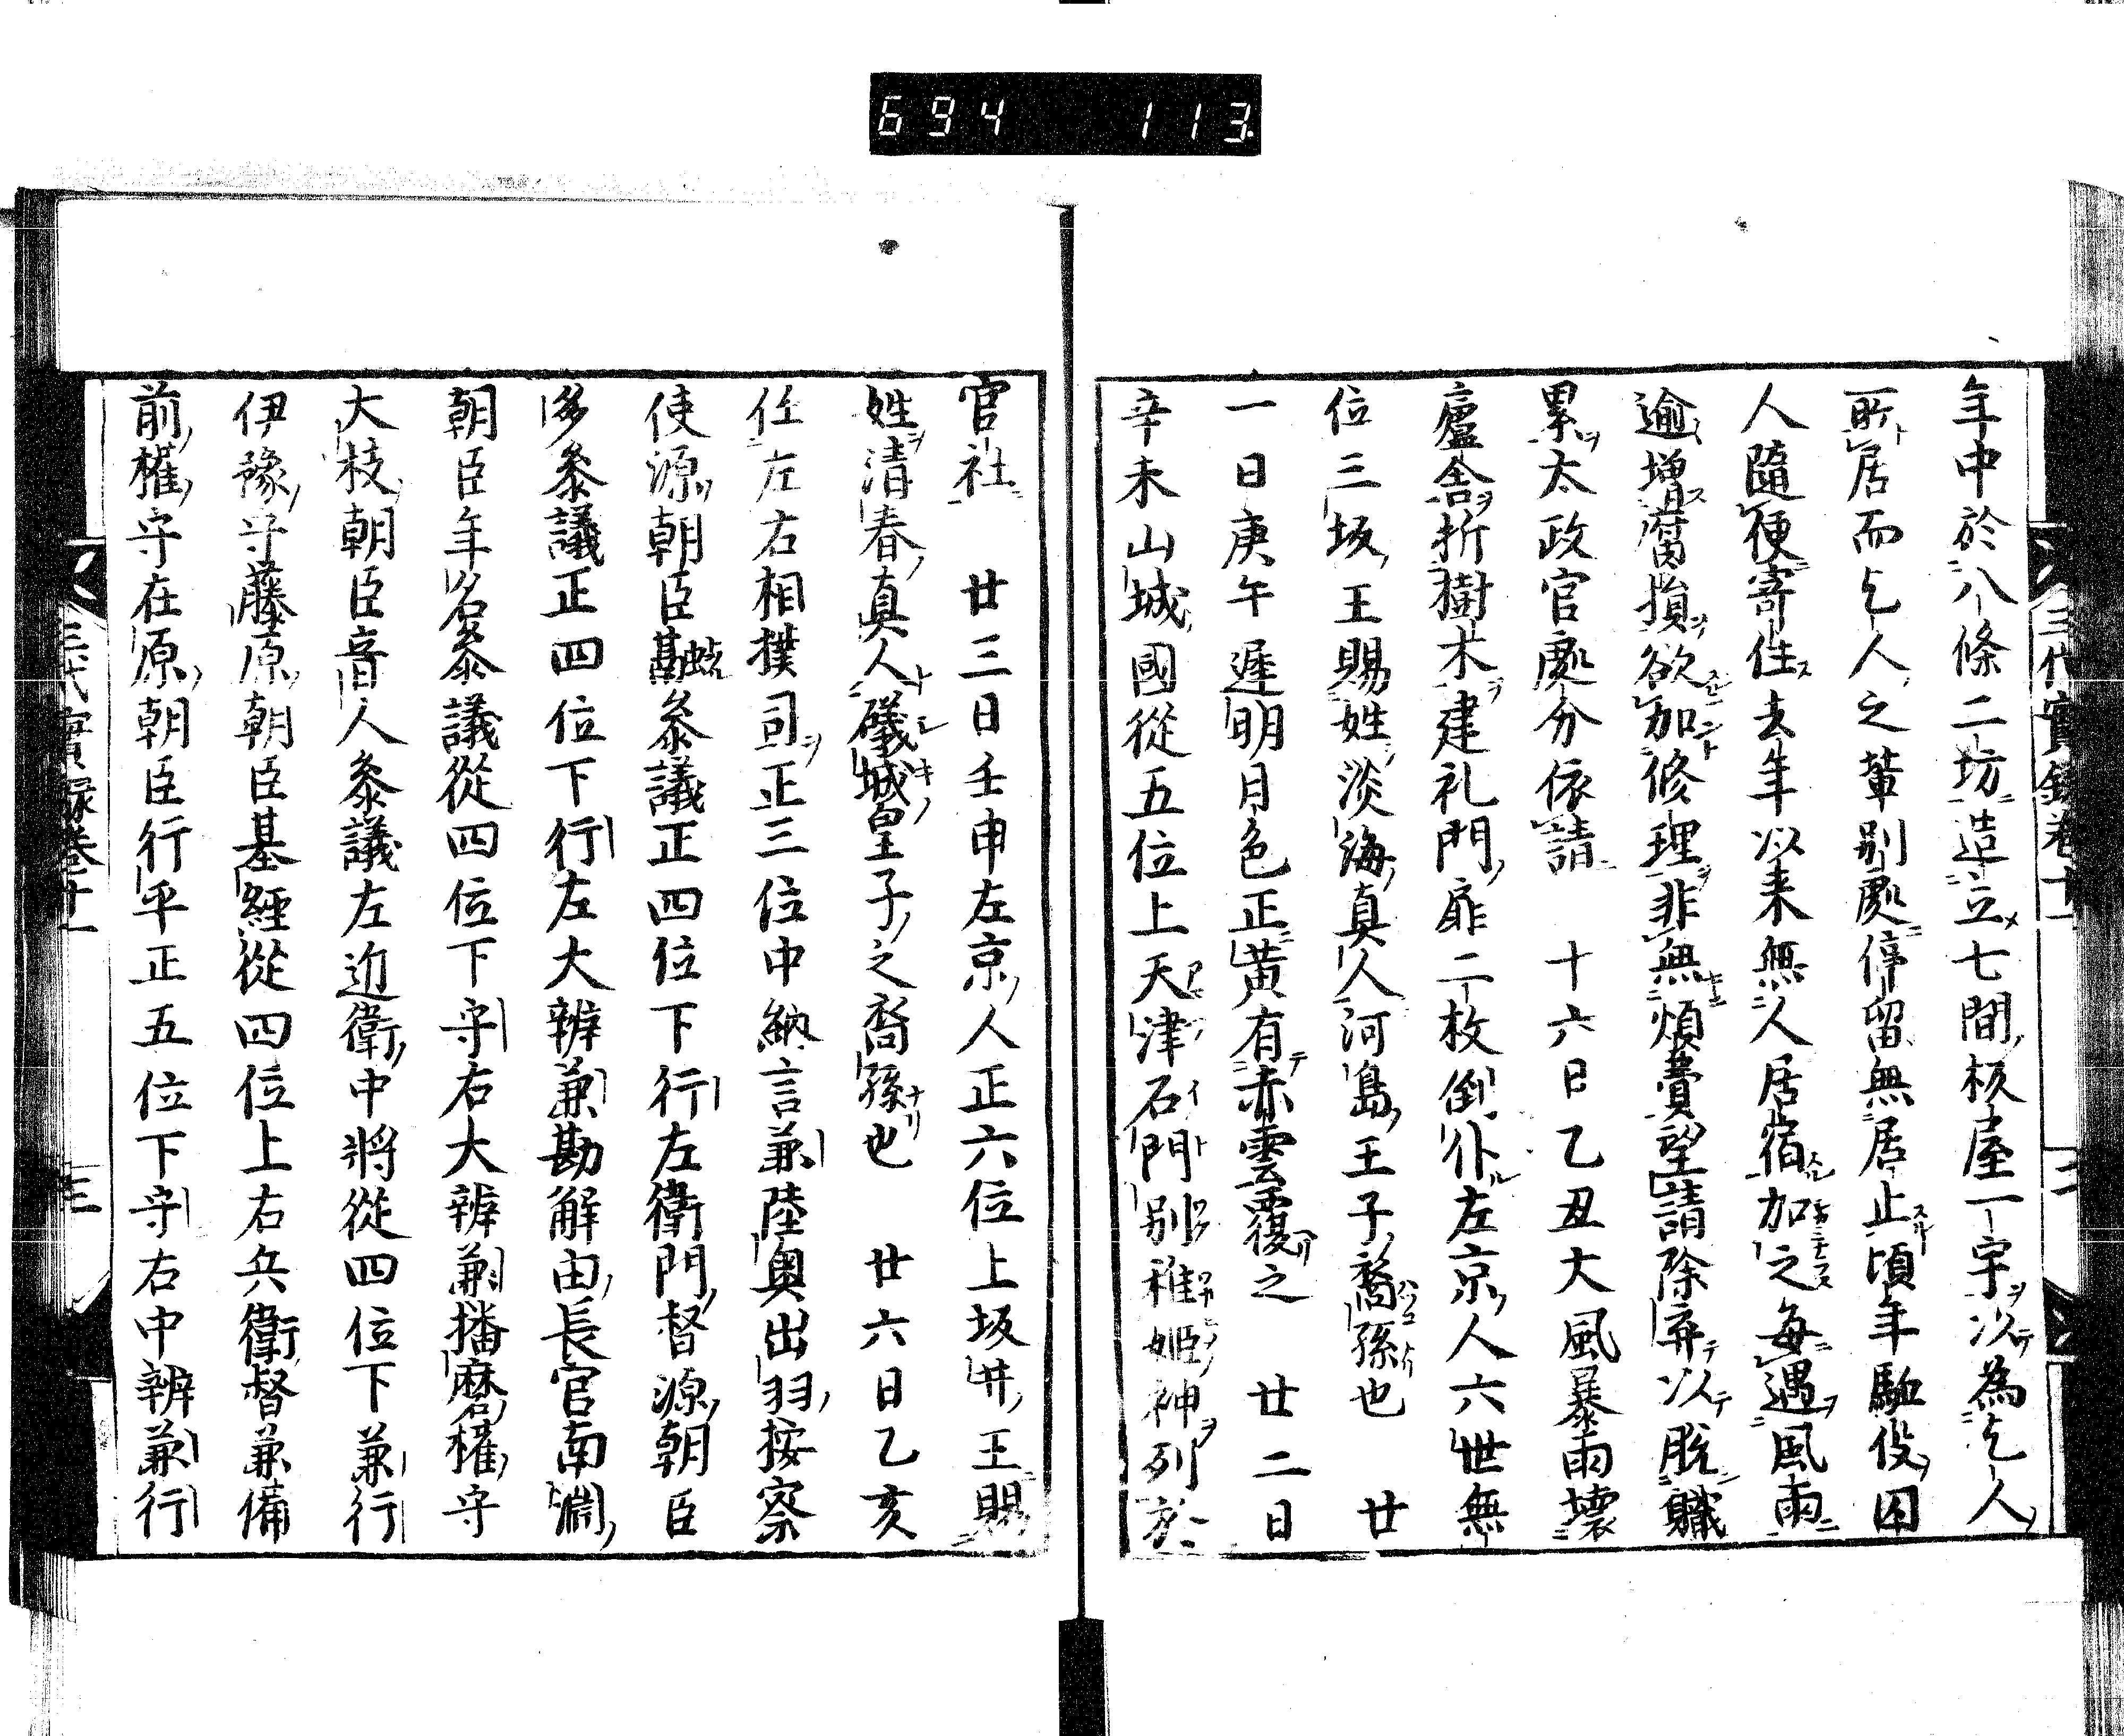 694 113
三代實録卷十一 二
年中於八條二坊造立七間板屋一宇以為乞人
所居而乞人之輩別處停留無居止頃年駈役囚
人隨便寄住去年以来無人居宿加之每遇風雨
逾增腐損欲加修理非無煩費望請除弃以脱職
累太政官處分依請　十六日乙丑大風暴雨壊
廬舎折樹木建礼門扉二枚倒仆左京人六世無
位三坂王賜姓淡海真人河島王子裔孫也　廿
一日庚午遲明月色正黄有赤雲覆之　廿二日
辛未山城國從五位上天津石門別稚姬神列於
官社　廿三日壬申左京人正六位上坂井王賜
姓清春真人礒城皇子之裔孫也　廿六日乙亥
任左右相撲司正三位中納言兼陸奥出羽按察
使源朝臣融參議正四位下行左衛門督源朝臣
多參議正四位下行左大辨兼勘解由長官南淵
朝臣年名參議從四位下守右大辨兼播磨權守
大枝朝臣音人參議左近衛中将從四位下兼行
伊豫守藤原朝臣基經從四位上右兵衛督兼備
前權守在原朝臣行平正五位下守右中辨兼行
三代實録卷十一 三